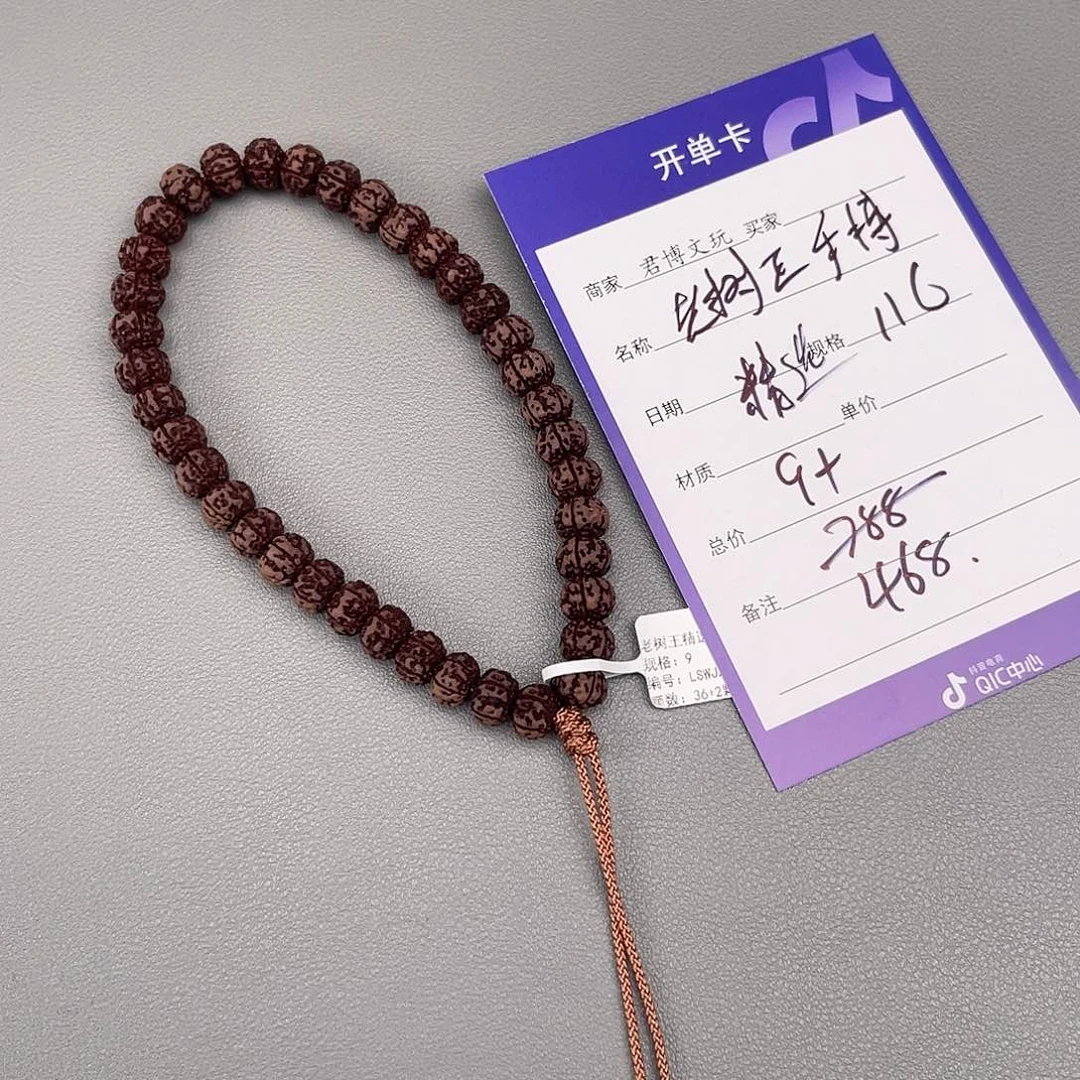 开单卡
商家 君博文玩 买家
名称 老树王手持
日期 精选 规格 116
材质 单价
总价 9+
788
备注 468.
抖音电商
QIC中心
老树王精
规格: 9
编号: LSWJ
颗数: 36+2